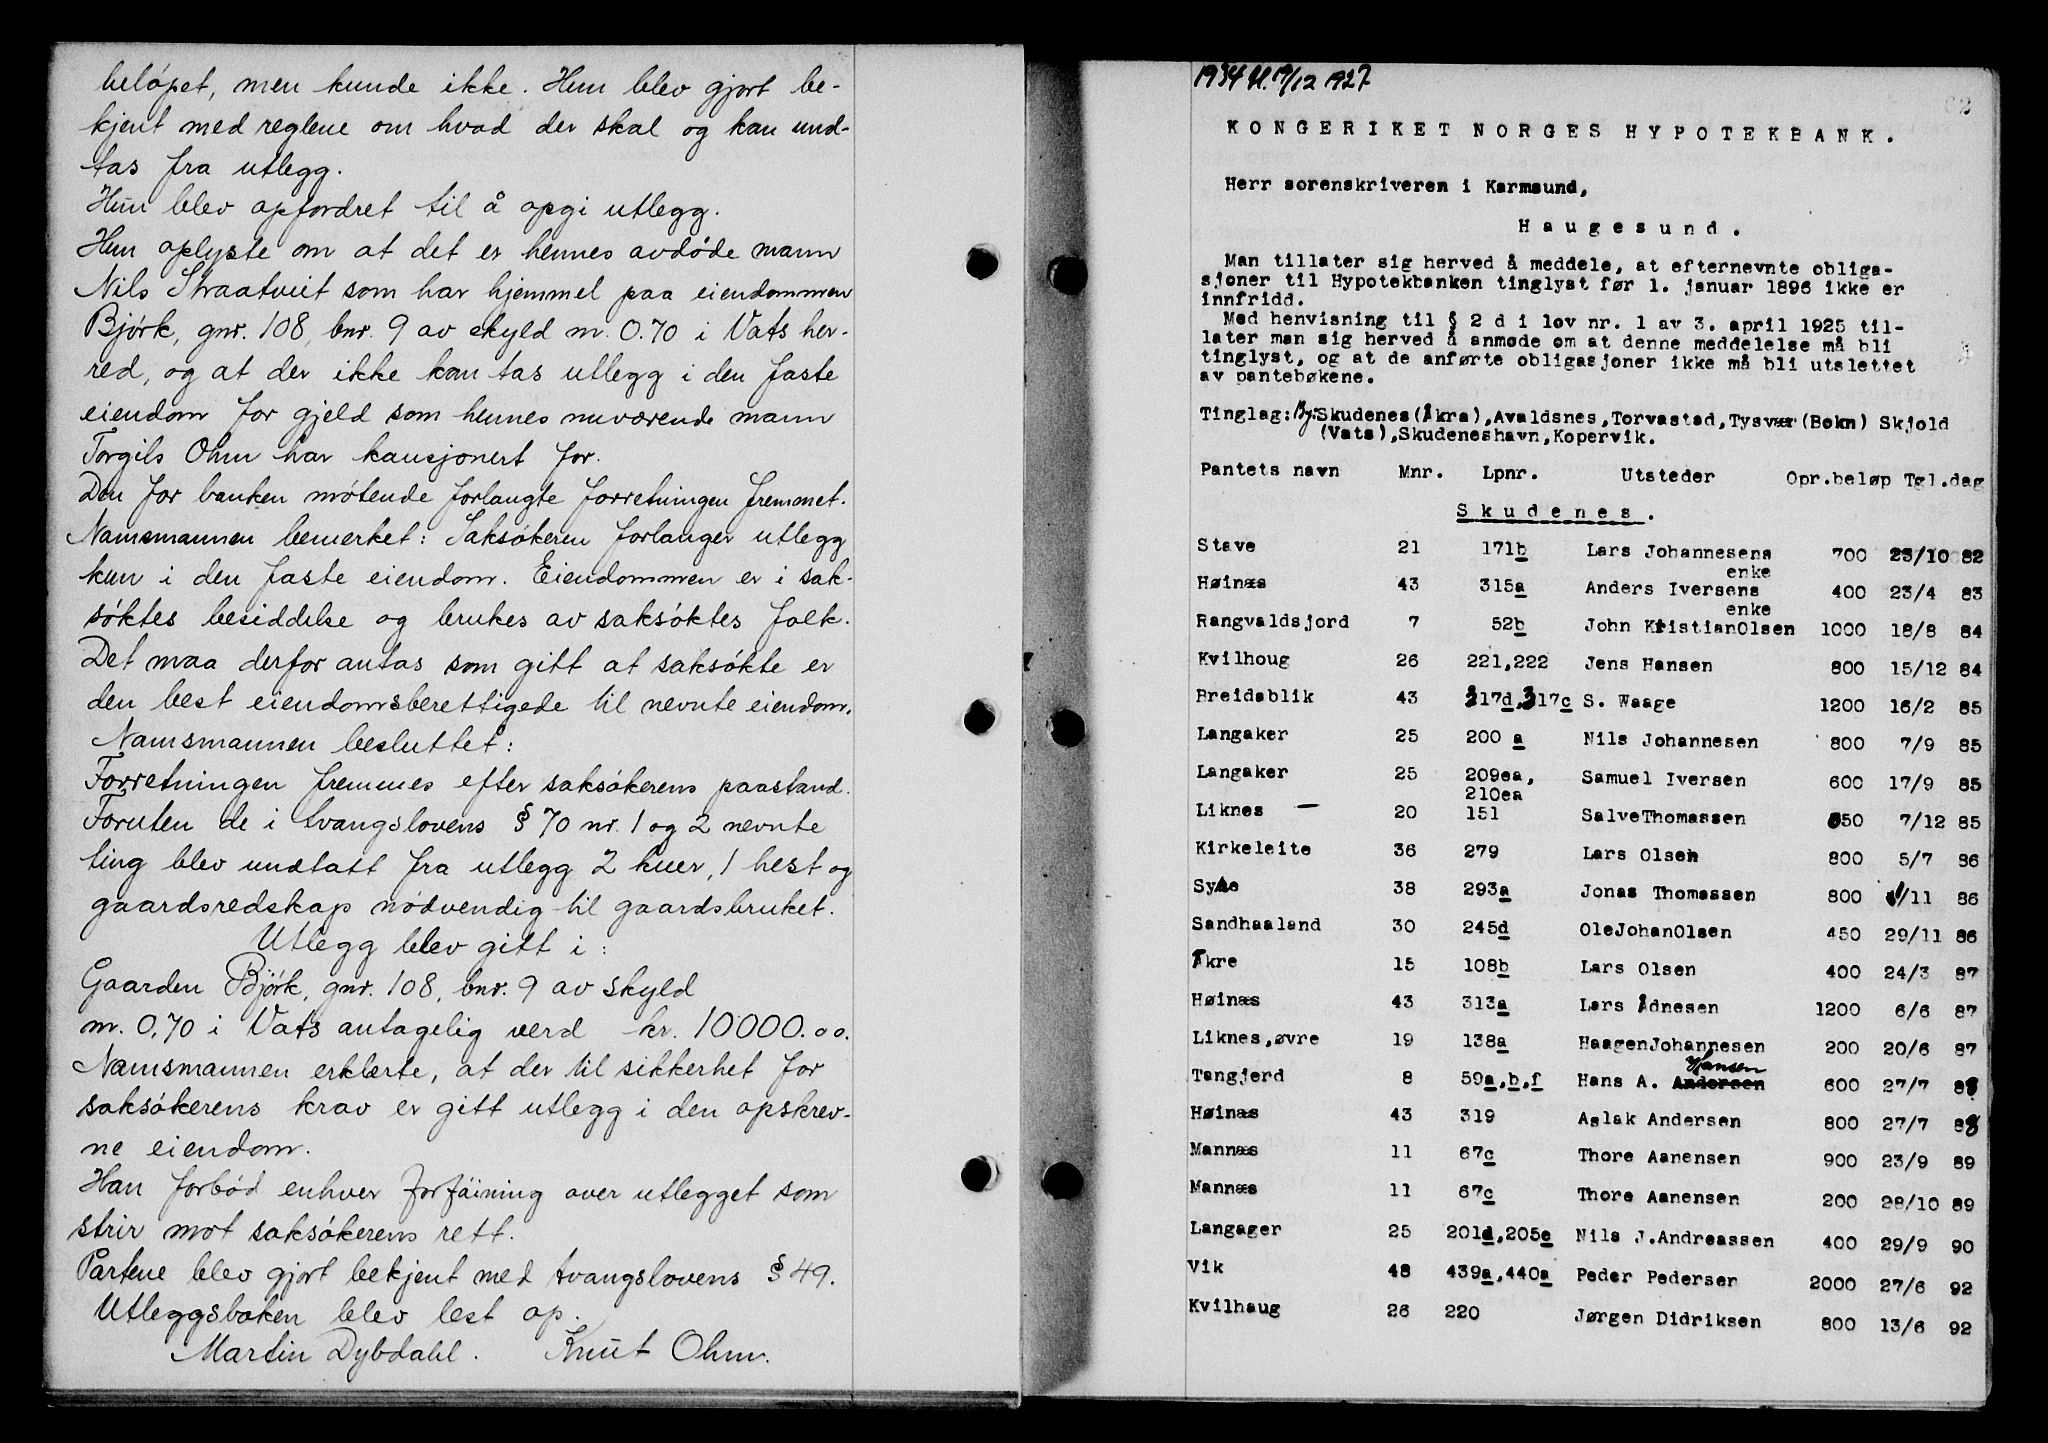 beløpet, men kunde ikke. Hun blev gjort be-
kjent med reglene om hvad der skal og kan und-
tas fra utlegg.
Hun blev opfordret til å opgi utlegg.
Hun oplyste om at det er hennes avdøde mann
Nils Straatveit som har hjemmel paa eiendommen
Bjórk, gnr. 108, bnr. 9 av skyld m. 0.70 i Vats her-
red, og at der ikke kan tas utlegg i den faste
eiendom for gjeld som hennes nuværende mann
Torgils Ohm har kausjonert for.
Den for banken mótende forlangte forretningen fremmet.
Namsmannen bemerket: Saksókeren forlanger utlegg
kun i den faste eiendom. Eiendommen er i sak-
sóktes besiddelse og brukes av saksóktes folk.
Det maa derfor antas som gitt at saksókte er
den best eiendomsberettigede til nevnte eiendom.
Namsmannen besluttet:
Forretningen fremmes efter saksókerens paastand.
Foruten de i tvangslovens § 70 nr. 1 og 2 nevnte
ting blev undtatt fra utlegg 2 kuer, 1 hest og
gaardsredskap nødvendig til gaardsbruket.
Utlegg blev gitt i:
Gaarden Bjórk, gnr. 108, bnr. 9 av skyld
m. 0,70 i Vats antagelig verd kr. 10000.00.
Namsmannen erklærte, at der til sikkerhet for
saksókerens krav er gitt utlegg i den opskrev-
ne eiendom.
Han forbód enhver forføining over utlegget som
strir mot saksókerens rett.
Partene blev gjort bekjent med tvangslovens § 49.
Utleggsboken blev lest op.
Martin Dybdahl. Knut Ohm.
1934 U. 19/12 1927
KONGERIKET NORGES HYPOTEKBANK.
Herr sorenskriveren i Karmsund,
Haugesund.
Man tillater sig herved å meddele, at efternevnte obliga-
sjoner til Hypotekbanken tinglyst før 1. januar 1896 ikke er
innfridd.
Med henvisning til § 2 d i lov nr. 1 av 3. april 1925 til-
later man sig herved å anmode om at denne meddelelse må bli
tinglyst, og at de anførte obligasjoner ikke må bli utslettet
av pantebøkene.
Tinglag: By: Skudenes (Åkra), Avaldsnes, Torvastad, Tysvær (Bokn) Skjold
(Vats), Skudeneshavn, Kopervik.
Pantets navn Mnr. Lpnr. Utsteder Opr.beløp Tgl.dag
Skudenes.
Stave 21 171b Lars Johannesens enke 700 23/10 82
Høinæs 43 315a Anders Iversens enke 400 23/4 83
Rangvaldsjord 7 52b John KristianOlsen 1000 18/8 84
Kvilhoug 26 221,222 Jens Hansen 800 15/12 84
Breidablik 43 317d,317c S. Waage 1200 16/2 85
Langaker 25 200 a Nils Johannesen 800 7/9 85
Langaker 25 209ea, 210ea Samuel Iversen 600 17/9 85
Liknes 20 151 SalveThomassen 550 7/12 85
Kirkeleite 36 279 Lars Olsen 800 5/7 86
Syre 38 293a Jonas Thomassen 800 /11 86
Sandhaaland 30 245d OleJohanOlsen 450 29/11 86
Åkre 15 108b Lars Olsen 400 24/3 87
Høinæs 43 313a Lars Ådnesen 1200 6/6 87
Liknes,øvre 19 138a HaagenJohannesen 200 20/6 87
Tangjerd 8 59a,b,f Hans A. Andersen Hansen 600 27/7 88
Høinæs 43 319 Aslak Andersen 800 27/7 88
Mannæs 11 67c Thore Aanensen 900 23/9 89
Mannæs 11 67c Thore Aanensen 200 28/10 89
Langager 25 201d,205e Nils J.Andreassen 400 29/9 90
Vik 48 439a,440a Peder Pedersen 2000 27/6 92
Kvilhaug 26 220 Jørgen Didriksen 800 13/6 92